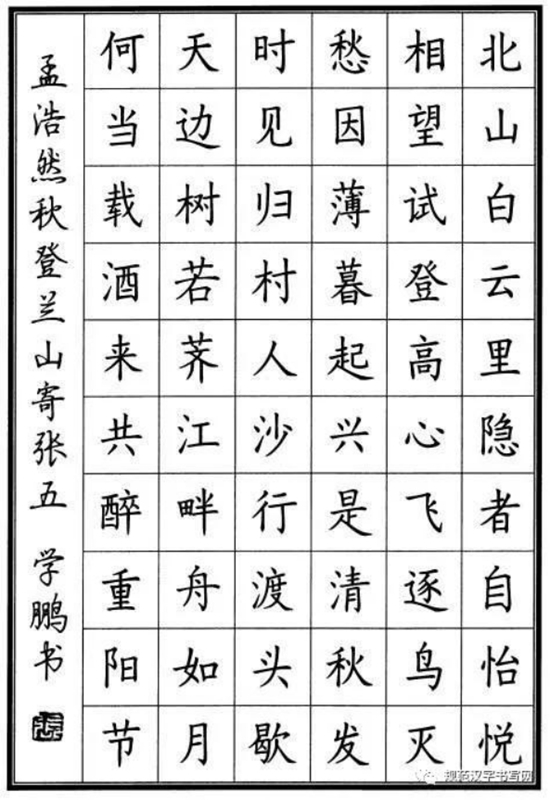 北山白云里隐者自怡悦
相望试登高心飞逐鸟灭
愁因薄暮起兴是清秋发
时见归村人沙行渡头歇
天边树若荠江畔舟如月
何当载酒来共醉重阳节
孟浩然秋登兰山寄张五 学鹏书
规范汉字书写网